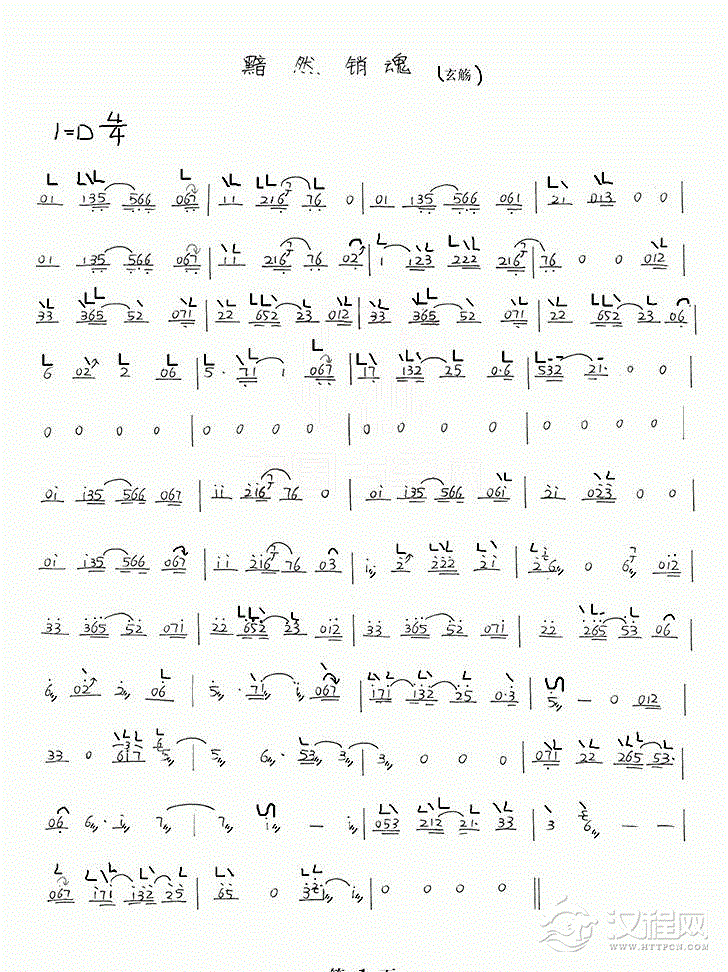 黯然销魂 (玄觞)
1=D 4/4
01 135 566 067 | 11 216 7 76 0 | 01 135 566 061 | 21 013 0 0 |
01 135 566 067 | 11 216 7 76 02 | 1 123 222 216 7 | 76 0 0 012 |
33 365 52 071 | 22 652 23 012 | 33 365 52 071 | 22 652 23 06 |
6 02 2 06 | 5· 71 1 067 | 17 132 25 0·6 | 532 21· 0 0 |
0 0 0 0 | 0 0 0 0 | 0 0 0 0 | 0 0 0 0 |
01 135 566 067 | 11 216 7 76 0 | 01 135 566 061 | 21 023 0 0 |
01 135 566 067 | 11 216 7 76 03 | 1 2 222 21 | 2 6 0 6 012 |
33 365 52 071 | 22 652 23 012 | 33 365 52 071 | 22 265 53 06 |
6 02 2 06 | 5 · 71 1 067 | 171 132 25 0·3 | 5 — 0 012 |
33 0 5 | 5 6· 53 3 | 3 0 0 0 | 071 22 265 53· |
06 6· 1 7 | 7 1 — 1 | 053 212 21· 33 | 3 6 — — |
067 171 132 25 | 65 0 1 | 1 0 0 0 0 ‖
汉程网
HTTPCN.COM